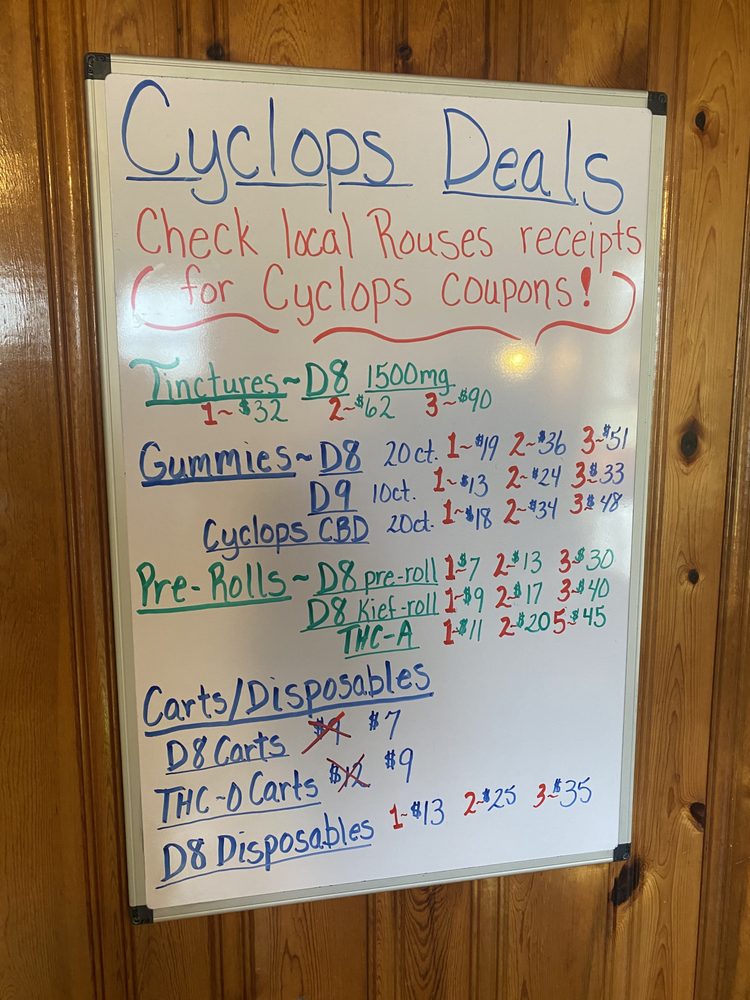 Cyclops Deals
Check local Rouses receipts
(for Cyclops coupons!)
Tinctures~D8 1500mg
1~$32 2~$62 3~$90
Gummies~D8 20ct. 1~$19 2~$36 3~$51
D9 10ct. 1~$13 2~$24 3~$33
Cyclops CBD 20ct. 1~$18 2~$34 3~$48
Pre-Rolls~D8 pre-roll 1~$7 2~$13 3~$30
D8 Kief-roll 1~$9 2~$17 3~$40
THC-A 1~$11 2~$20 5~$45
Carts/Disposables
D8 Carts $9 $7
THC-O Carts $12 $9
D8 Disposables 1~$13 2~$25 3~$35